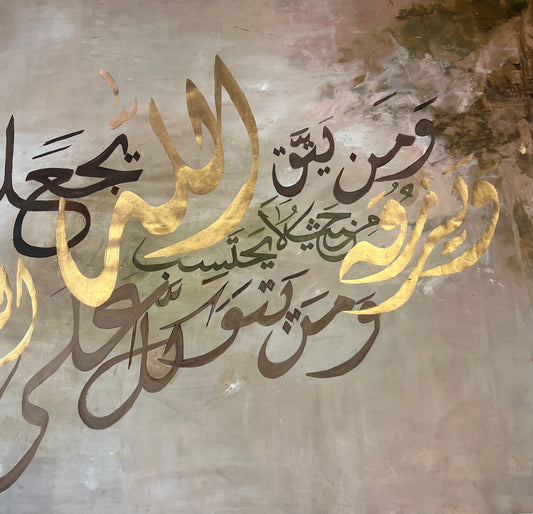 وَمَن يَتَّقِ اللَّه يَجعَل
وَيَرزُقهُ مِن حَيثُ لَا يَحتَسِب
وَمَن يَتَوَكَّل عَلَى الله